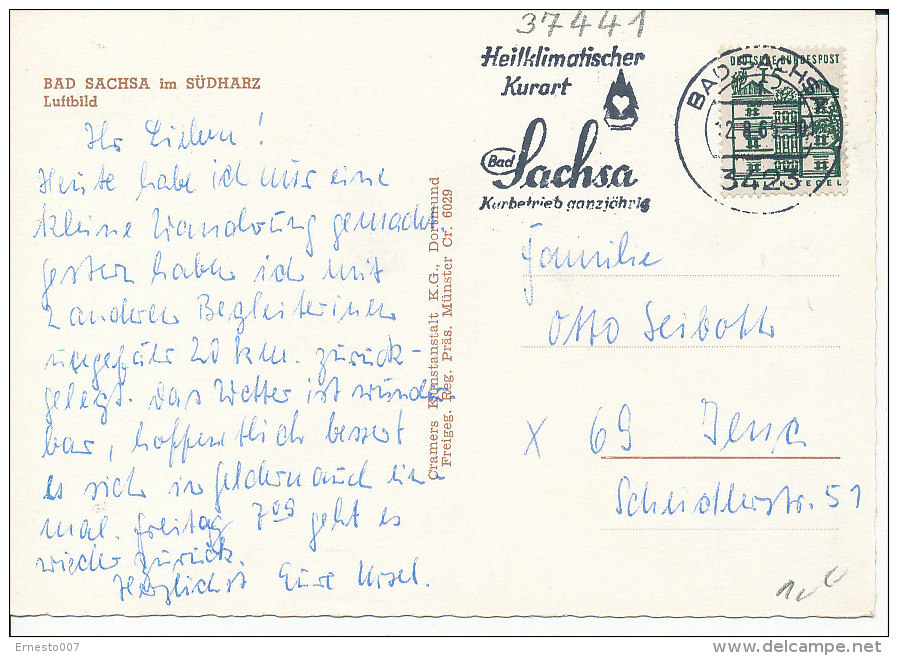 37441
BAD SACHSA im SÜDHARZ
Luftbild
Heilklimatischer
Kurort
Bad Sachsa
Kurbetrieb ganzjährig
BAD SACHSA
3423
DEUTSCHE BUNDESPOST
15
TEGEL
Ihr Lieben!
Heute habe ich mir eine
kleine Wanderung gemacht
gestern habe ich mit
2 anderen Begleiterinnen
ungefähr 20 km. zurück-
gelegt. Das Wetter ist wunder
bar, hoffentlich bessert
es sich in Geldern auch ein-
mal. Freitag 7⁰⁹ geht es
wieder zurück.
Herzlichst Eure Ursel.
Cramers Kunstanstalt K.G., Dortmund
Freigeg. Reg. Präs. Münster Cr. 6029
Familie
Otto Seiboth
X 69 Jena
Scheidlerstr. 51
Ernesto007
www.delcampe.net